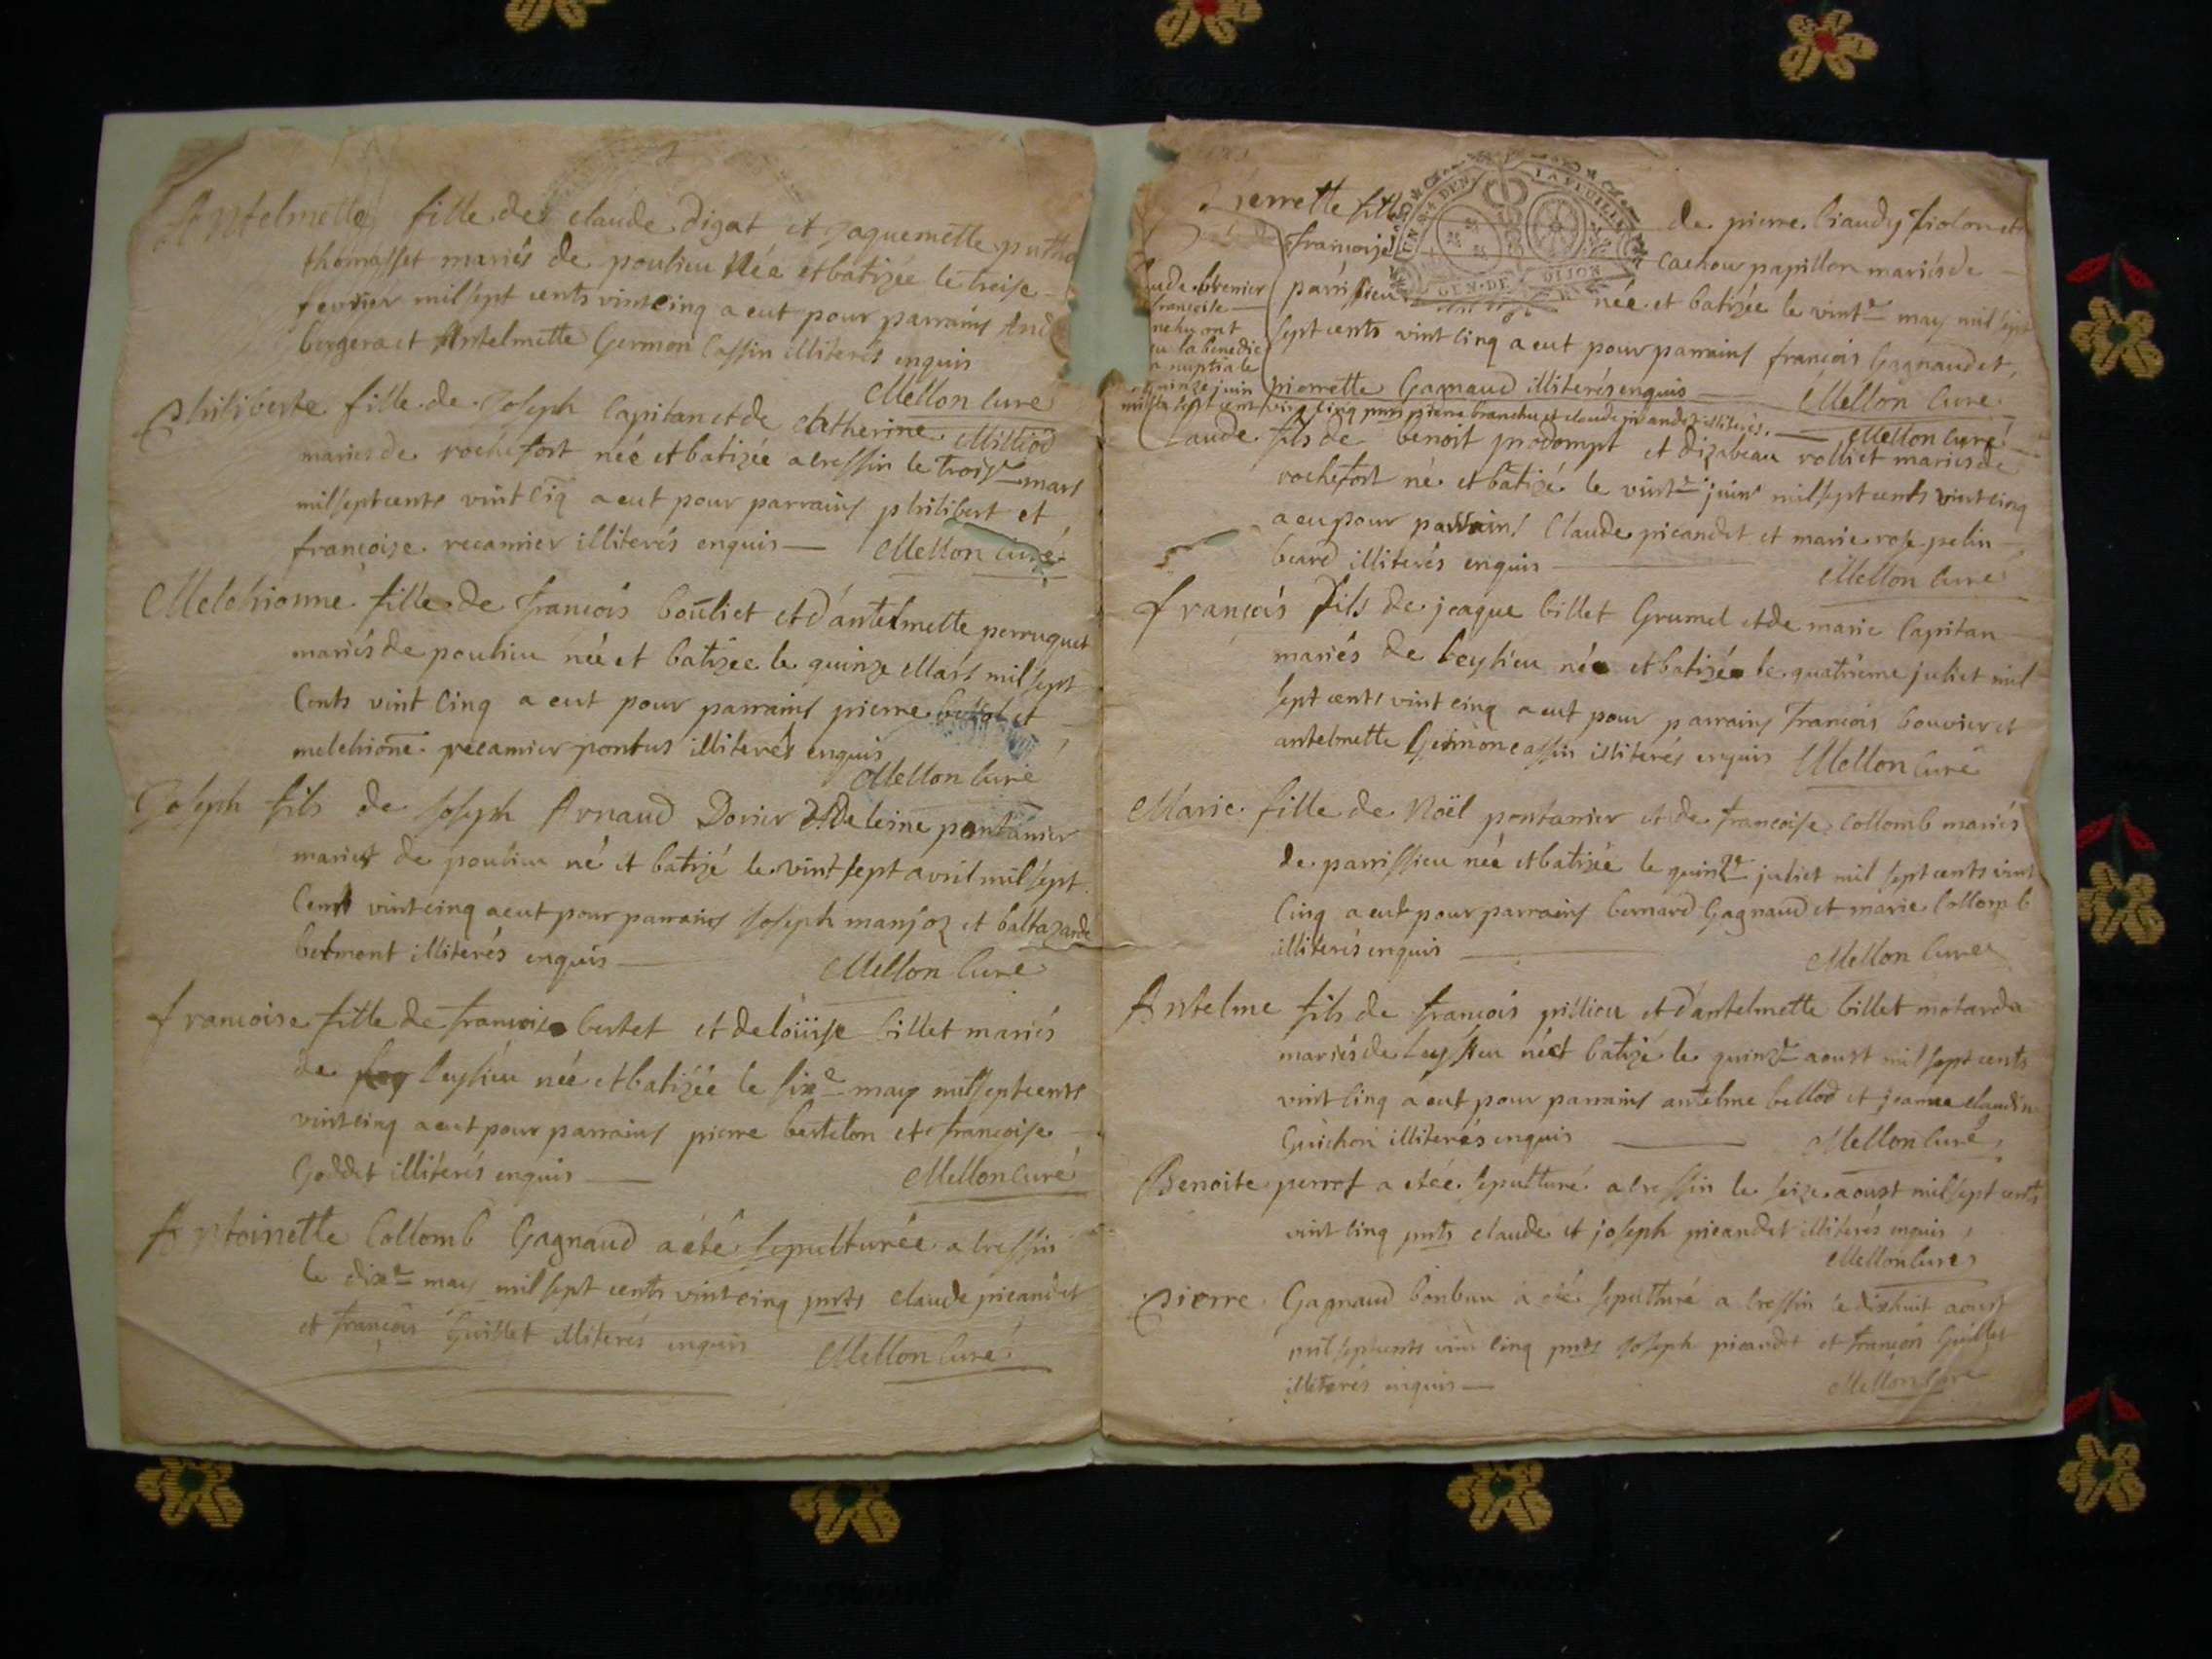 Antelmette fille de claude Digat et jaquemette
thomasset mariés de poulieu Née et batizée le treise
fevrier mil sept cents vint cinq a eut pour parrains
bergera et Antelmette Germon Cassin illiterés enquis
Mellon Curé
Philiberte fille de Joseph Capitan et de Catherine Milliod
mariés de rochefort née et batizée a cressin le troise mars
mil sept cents vint ciq a eut pour parrains philibert et
françoise recamier illiterés enquis
Mellon Curé
Melchionne fille de françois bouliet et d'antelmette perruquet
mariés de poulieu née et batizée le quinze Mars mil sept
Cents vint Cinq a eut pour parrains pierre et
melchione recamier pontus illiterés enquis
Mellon Curé
Joseph fils de Joseph Arnaud Dorier pontanier
mariés de poulieu né et batizé le vint sept avril mil sept
Cents vint cinq a eut pour parrains Joseph manjoz et baltazarde
belmont illiterés enquis
Mellon Curé
francoise fille de francois bertet et de loüise billet mariés
de leysieu née et batizée le sixe may mil sept cents
vint cinq a eut pour parrains pierre berthelon et françoise
Goddet illiterés enquis
Mellon Curé
Antoinette Collomb Gagnaud a été sepulturée a cressin
le dixe may mil sept cents vint cinq pnts claude picandet
et françois Guillet illiterés enquis
Mellon Curé
Pierrette fille de pierre
GEN. DE DIJON
françoise Cachour papillon mariés de
parrissieu née et batizée le vinte may mil sept
sept cents vint Cinq a eut pour parrains françois Gagnaud et
pierrette Gagnaud illiterés enquis
Mellon Curé
brenier
françoise
ont
la benedic
nuptiale
quinze juin
mille sept cent vint cinq pnts pierre et claude picandet illiterés
Mellon Curé
Claude fils de benoit prodompt et dizabeau rolliet mariés de
rochefort né et batizé le vinte juin mil sept cents vint cinq
a eu pour parrains Claude picandet et marie rose pelin
beard illiterés enquis
Mellon Curé
françois fils de jeaque billet Grumel et de marie Capitan
mariés de leysieu né et batizé le quatrieme juliet mil
sept cents vint cinq a eut pour parrains françois bouvier et
antelmette Germon cassin illiterés enquis
Mellon Curé
Marie fille de Noël pontanier et de françoise Collomb mariés
de parrissieu née et batizée le quinze juliet mil sept cents vint
Cinq a eut pour parrains bernard Gagnaud et marie Collomb
illiterés enquis
Mellon Curé
Antelme fils de françois pillieu et d'antelmette billet motarda
mariés de Leyssieu né et batizé le quinze aoust mil sept cents
vint Cinq a eut pour parrains antelme bellod et jeanne claudin
Guichon illiterés enquis
Mellon Curé
Benoite perret a etée sepulturé a cressin le seize aoust mil sept cents
vint Cinq pnts claude et joseph picandet illiterés enquis
Mellon Curé
Pierre Gagnaud bonbun a eté sepulturé a Cressin le dixhuit aoust
mil sept cents vint Cinq pnts Joseph picandet et françois Guillet
illiterés enquis
Mellon Curé